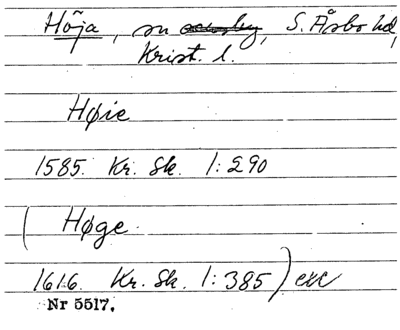 Höja, sn, S. Åsbo hd,
Krist. l.
Høie
1585. Kr. Sk. 1:290
( Høge
1616. Kr. Sk. 1:385) exc
Nr 5517.